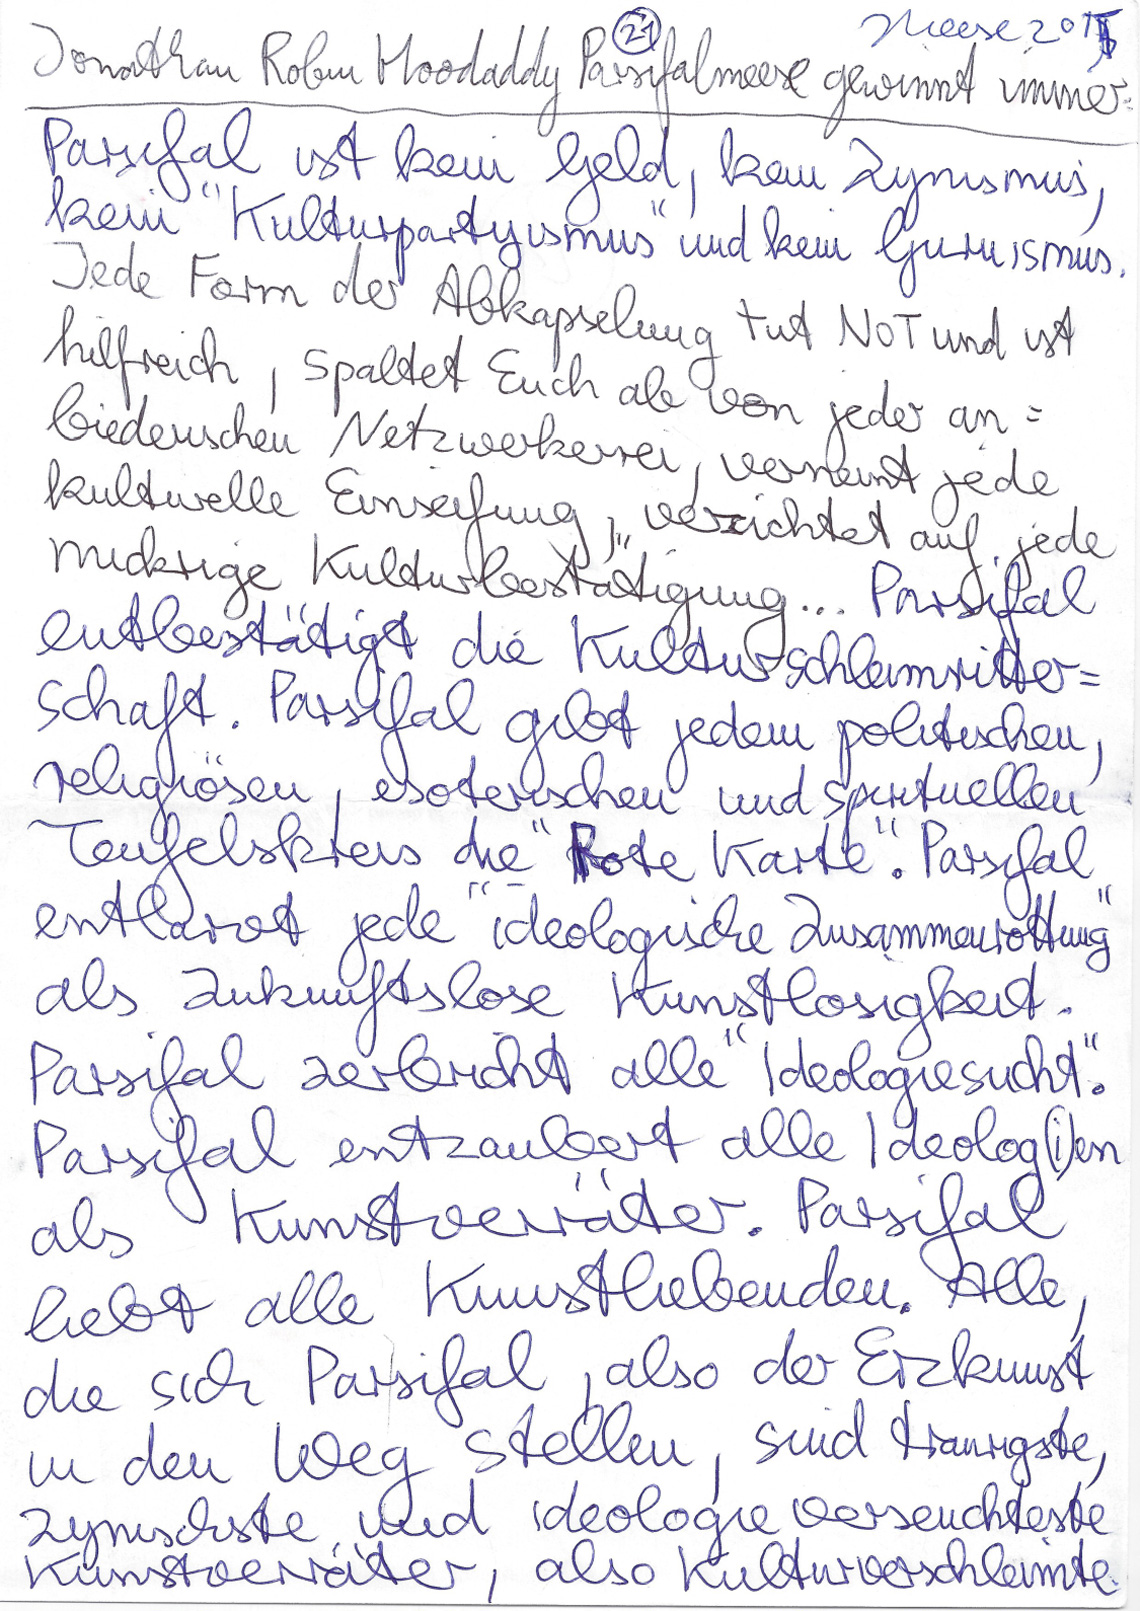 21
Meese 2015
Jonathan Robin Hoodaddy Parsifalmeese gewinnt immer:
Parsifal ist kein Geld, kein Zynismus,
kein "Kulturpartyismus" und kein Guruismus.
Jede Form der Abkapselung tut NOT und ist
hilfreich, spaltet Euch ab von jeder an=
biederischen Netzwerkerei, verneint jede
kulturelle Einseifung, verzichtet auf jede
mickrige "Kulturbestätigung... Parsifal
entbestätigt die Kulturschleimritter=
schaft. Parsifal gibt jedem politischen,
religiösen, esoterischen und spirituellen
Teufelskreis die "Rote Karte". Parsifal
entlarvt jede "ideologische Zusammenrottung"
als zukunftslose Kunstlosigkeit.
Parsifal zerbricht alle "Ideologiesucht".
Parsifal entzaubert alle Ideolog(i)en
als Kunstverräter. Parsifal
liebt alle Kunstliebenden. Alle,
die sich Parsifal, also der Erzkunst
in den Weg stellen, sind traurigste,
zynischste und ideologieverseuchteste
Kunstverräter, also Kulturverschleimte.